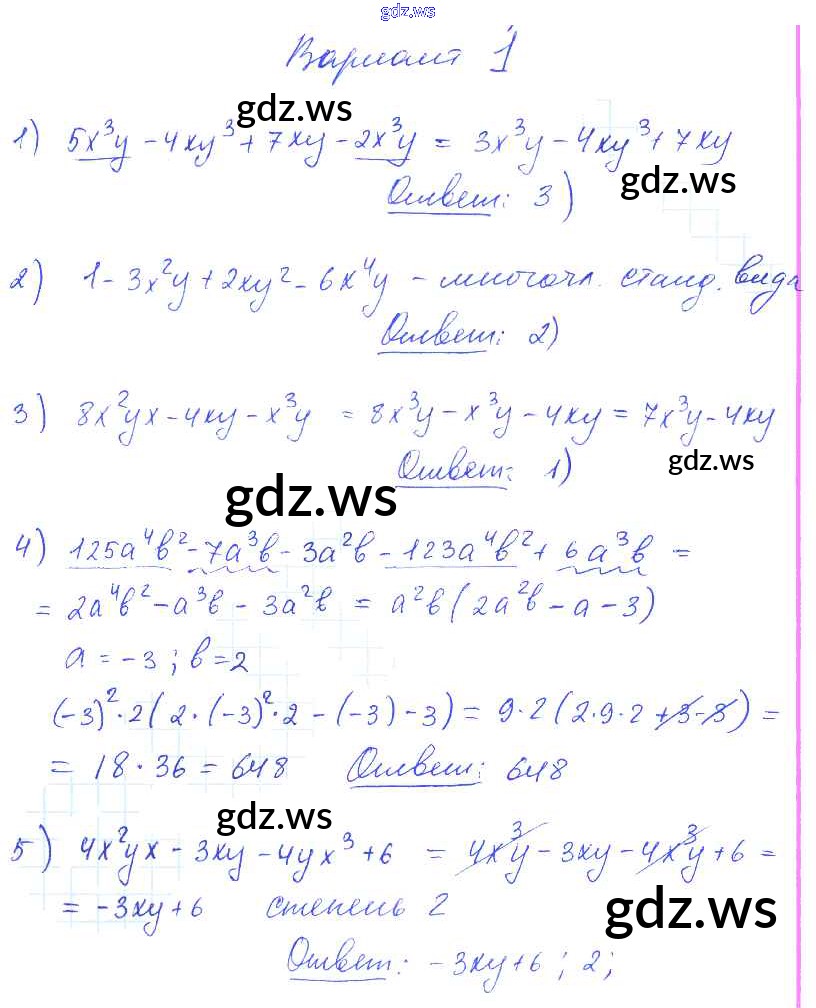 gdz.ws
Вариант 1
1) 5x³y - 4xy³ + 7xy - 2x³y = 3x³y - 4xy³ + 7xy
gdz.ws
gdz.ws
Ответ: 3)
2) 1 - 3x²y + 2xy² - 6x⁴y - многочл. станд. вида
Ответ: 2)
3) 8x²yx - 4xy - x³y = 8x³y - x³y - 4xy = 7x³y - 4xy
Ответ: 1)
gdz.ws
gdz.ws
4) 125a⁴b² - 7a³b - 3a²b - 123a⁴b² + 6a³b =
= 2a⁴b² - a³b - 3a²b = a²b(2a²b - a - 3)
a = -3; b = 2
(-3)²·2(2·(-3)²·2 - (-3) - 3) = 9·2(2·9·2 + 3 - 3) =
= 18·36 = 648 Ответ: 648
gdz.ws
5) 4x²yx - 3xy - 4yx³ + 6 = 4x³y - 3xy - 4x³y + 6 =
= -3xy + 6 степень 2
gdz.ws
Ответ: -3xy + 6; 2;